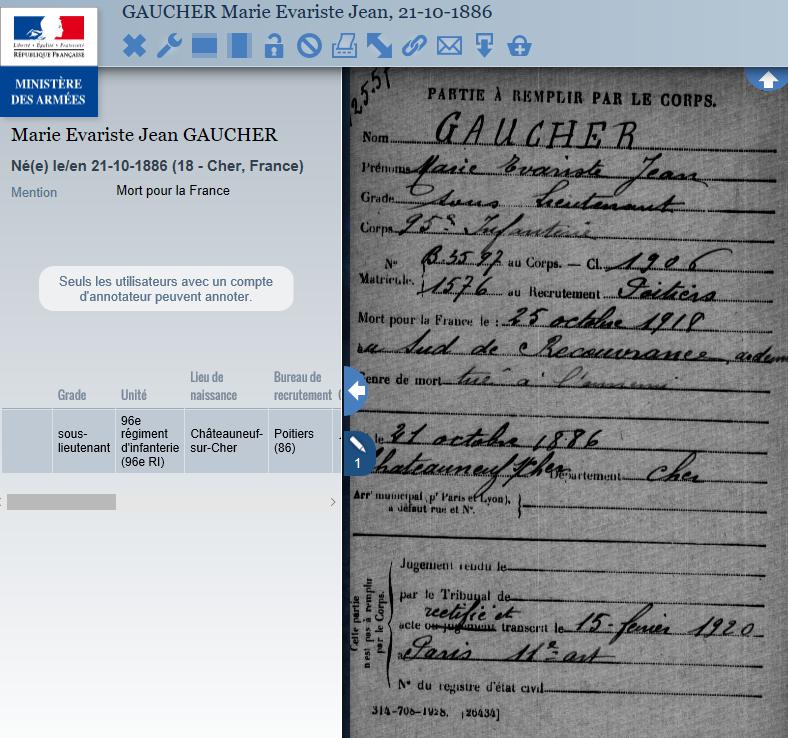 GAUCHER Marie Evariste Jean, 21-10-1886
Liberté • Égalité • Fraternité
RÉPUBLIQUE FRANÇAISE
MINISTÈRE
DES ARMÉES
Marie Evariste Jean GAUCHER
Né(e) le/en 21-10-1886 (18 - Cher, France)
Mention Mort pour la France
Seuls les utilisateurs avec un compte
d'annotateur peuvent annoter.
Grade Unité Lieu de naissance Bureau de recrutement
sous-lieutenant 96e régiment d'infanterie (96e RI) Châteauneuf-sur-Cher Poitiers (86)
1
PARTIE À REMPLIR PAR LE CORPS.
Nom GAUCHER
Prénoms Marie Evariste Jean
Grade sous Lieutenant
Corps 95e Infanterie
N° Matricule. B.3597 au Corps. — Cl. 1906
1576 au Recrutement Poitiers
Mort pour la France le : 25 octobre 1918
au Sud de Recouvrance,
Genre de mort tué à l'ennemi
le 21 octobre 1886
Chateauneuf s/Cher Département Cher
Arrt municipal (pr Paris et Lyon),
à défaut rue et N°.
Cette partie n'est pas à remplir par le Corps.
Jugement rendu le
par le Tribunal de
rectifié et
acte ou jugement transcrit le 15 - fevrier 1920
à Paris 11e art
N° du registre d'état civil
314-708-1928. [26434]